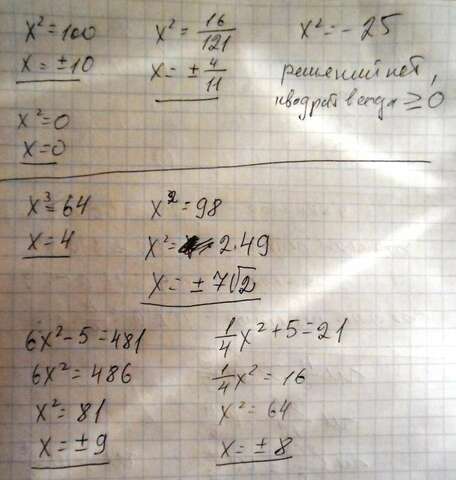 x²=100
x=±10
x²=16/121
x=±4/11
x²=-25
решений нет,
квадрат всегда ≥0
x²=0
x=0
x³=64
x=4
x²=98
x²=2·49
x=±7√2
6x²-5=481
6x²=486
x²=81
x=±9
1/4x²+5=21
1/4x²=16
x²=64
x=±8